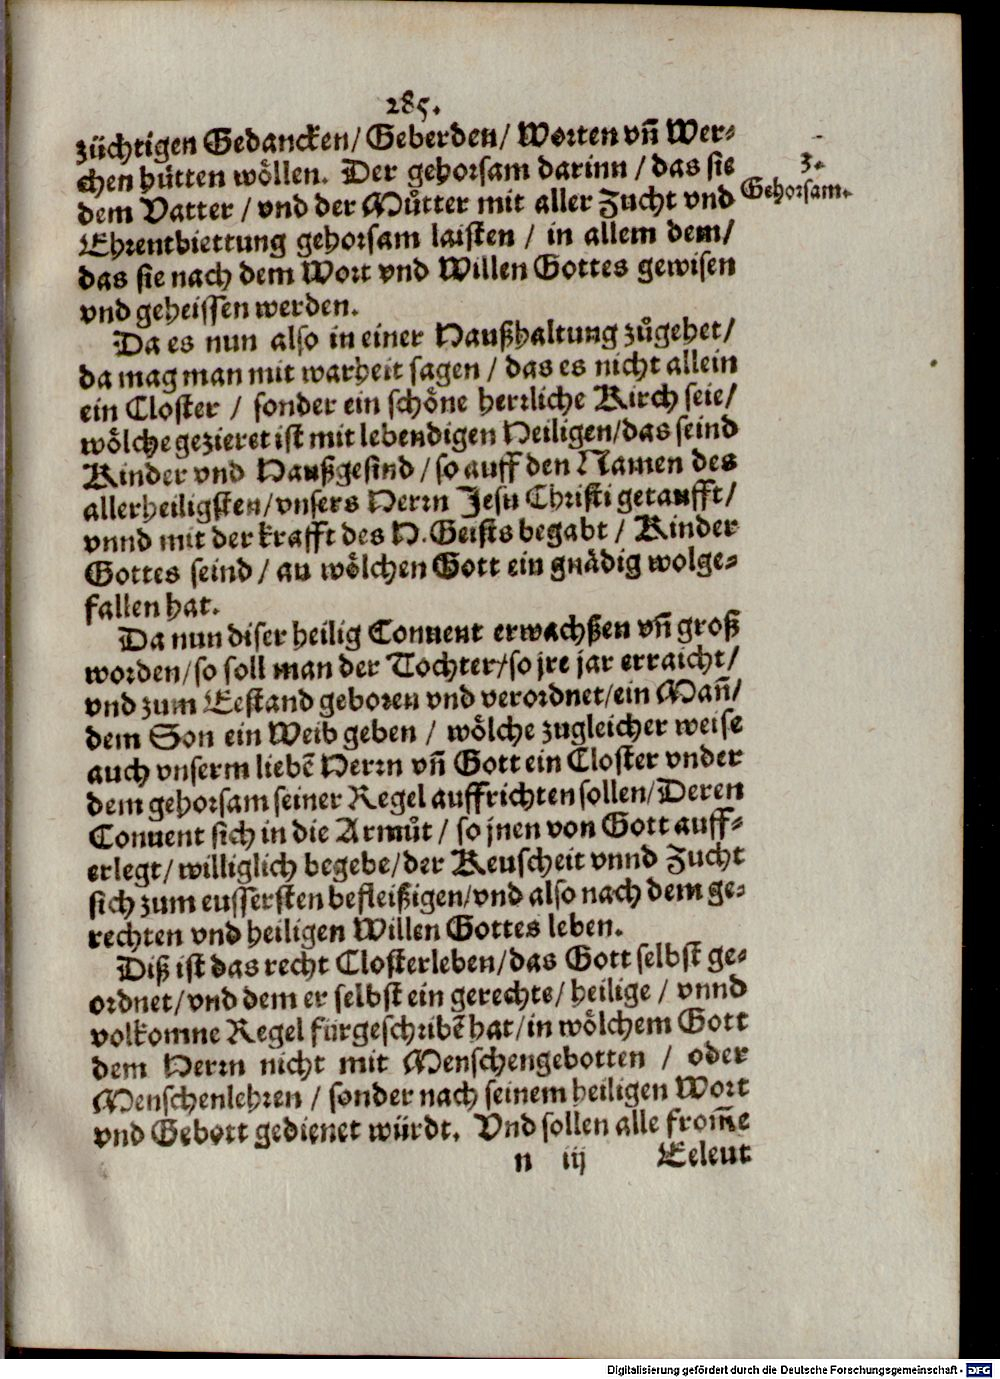 285.
züchtigen Gedancken/ Geberden/ Worten vñ Wer-
chen hütten wöllen. Der gehorsam darinn / das sie
3.
Gehorsam.
dem Vatter / vnd der Můtter mit aller Zucht vnd
Ehrentbiettung gehorsam laisten / in allem dem/
das sie nach dem Wort vnd Willen Gottes gewisen
vnd geheissen werden.
Da es nun also in einer Haußhaltung zůgehet/
da mag man mit warheit sagen / das es nicht allein
ein Closter / sonder ein schöne herrliche Kirch seie/
wölche gezieret ist mit lebendigen Heiligen/das seind
Kinder vnd Haußgesind / so auff den Namen des
allerheiligsten/vnsers Herrn Jesu Christi getaufft/
vnnd mit der krafft des H. Geists begabt / Kinder
Gottes seind / an wölchen Gott ein gnädig wolge-
fallen hat.
Da nun diser heilig Conuent erwachßen vñ groß
worden/so soll man der Tochter/so jre jar erraicht/
vnd zum Eestand geboren vnd verordnet/ein Mañ/
dem Son ein Weib geben / wölche zugleicher weise
auch vnserm liebē Herrn vñ Gott ein Closter vnder
dem gehorsam seiner Regel auffrichten sollen/Deren
Conuent sich in die Armůt / so jnen von Gott auff-
erlegt/ williglich begebe/der Keuscheit vnnd Zucht
sich zum eussersten befleißigen/vnd also nach dem ge-
rechten vnd heiligen Willen Gottes leben.
Diß ist das recht Closterleben/das Gott selbst ge-
ordnet/vnd dem er selbst ein gerechte/ heilige / vnnd
volkomne Regel fürgeschribē hat/in wölchem Gott
dem Herrn nicht mit Menschengebotten / oder
Menschenlehren / sonder nach seinem heiligen Wort
vnd Gebott gedienet würdt. Vnd sollen alle from̃e
n iij Eeleut
Digitalisierung gefördert durch die Deutsche Forschungsgemeinschaft - DFG